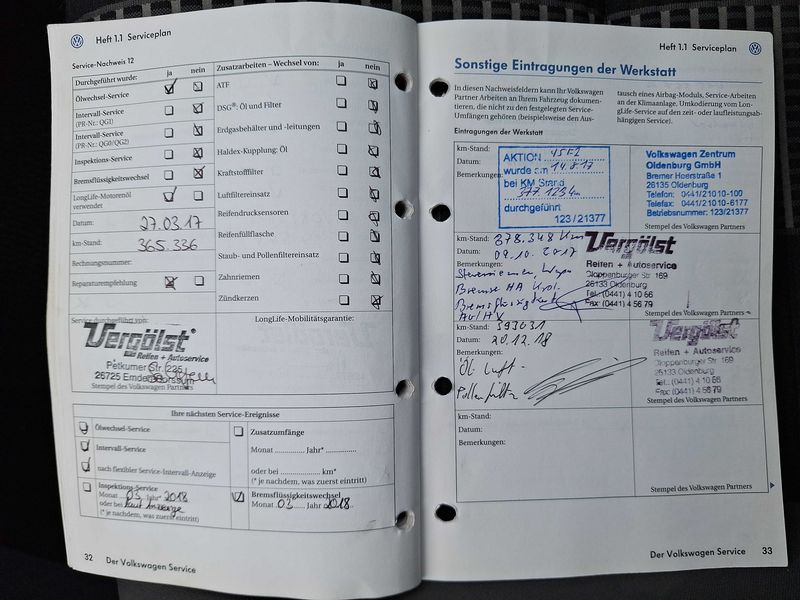 Heft 1.1 Serviceplan
Service-Nachweis 12
Durchgeführt wurde: ja nein
Ölwechsel-Service
Intervall-Service
(PR-Nr.: QG1)
Intervall-Service
(PR-Nr.: QG0/QG2)
Inspektions-Service
Bremsflüssigkeitswechsel
LongLife-Motorenöl
verwendet
Datum: 27.03.17
km-Stand: 365.336
Rechnungsnummer:
Reparaturempfehlung
Zusatzarbeiten – Wechsel von: ja nein
ATF
DSG®: Öl und Filter
Erdgasbehälter und -leitungen
Haldex-Kupplung: Öl
Kraftstofffilter
Luftfiltereinsatz
Reifendrucksensoren
Reifenfüllflasche
Staub- und Pollenfiltereinsatz
Zahnriemen
Zündkerzen
Service durchgeführt von:
Vergölst
Reifen + Autoservice
Petkumer Str. 235
26725 Emden
Stempel des Volkswagen Partners
LongLife-Mobilitätsgarantie:
Ihre nächsten Service-Ereignisse
Ölwechsel-Service
Intervall-Service
nach flexibler Service-Intervall-Anzeige
Inspektions-Service
Monat 03 Jahr* 2018
oder bei laut Anzeige
(* je nachdem, was zuerst eintritt)
Zusatzumfänge
Monat ............ Jahr* ..............
oder bei .................. km*
(* je nachdem, was zuerst eintritt)
Bremsflüssigkeitswechsel
Monat 03 Jahr 2018
32 Der Volkswagen Service
Heft 1.1 Serviceplan
Sonstige Eintragungen der Werkstatt
In diesen Nachweisfeldern kann Ihr Volkswagen
Partner Arbeiten an Ihrem Fahrzeug dokumen-
tieren, die nicht zu den festgelegten Service-
Umfängen gehören (beispielsweise den Aus-
tausch eines Airbag-Moduls, Service-Arbeiten
an der Klimaanlage, Umkodierung vom Lon-
gLife-Service auf den zeit- oder laufleistungsab-
hängigen Service).
Eintragungen der Werkstatt
km-Stand:
Datum:
Bemerkungen:
AKTION
wurde am 14.8.17
bei KM Stand
durchgeführt
123/21377
Volkswagen Zentrum
Oldenburg GmbH
Bremer Heerstraße 1
26135 Oldenburg
Telefon: 0441/21010-100
Telefax: 0441/21010-6177
Betriebsnummer: 123/21377
Stempel des Volkswagen Partners
km-Stand: 378.348 km
Datum: 09.10.2017
Bemerkungen:
Bremse HA
Vergölst
Reifen + Autoservice
Cloppenburger Str. 169
26133 Oldenburg
Tel.: (0441) 4 10 66
Fax: (0441) 4 56 79
Stempel des Volkswagen Partners
km-Stand: 393031
Datum: 20.12.18
Bemerkungen:
Öl Luft-
Pollenfilter
Vergölst
Reifen + Autoservice
Cloppenburger Str. 169
26133 Oldenburg
Tel.: (0441) 4 10 66
Fax: (0441) 4 56 79
Stempel des Volkswagen Partners
km-Stand:
Datum:
Bemerkungen:
Stempel des Volkswagen Partners
Der Volkswagen Service 33